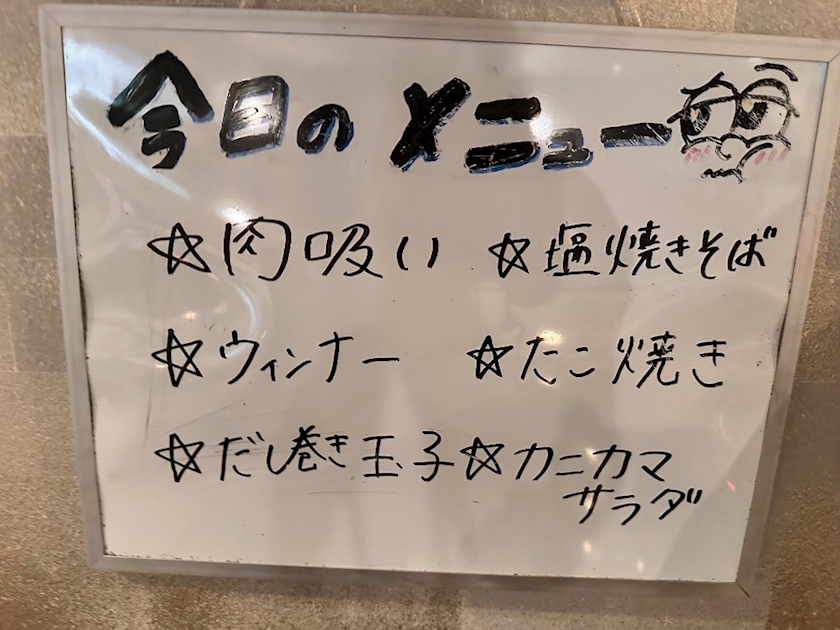 今日のメニュー
☆肉吸い ☆塩焼きそば
☆ウィンナー ☆たこ焼き
☆だし巻き玉子 ☆カニカマ
サラダ